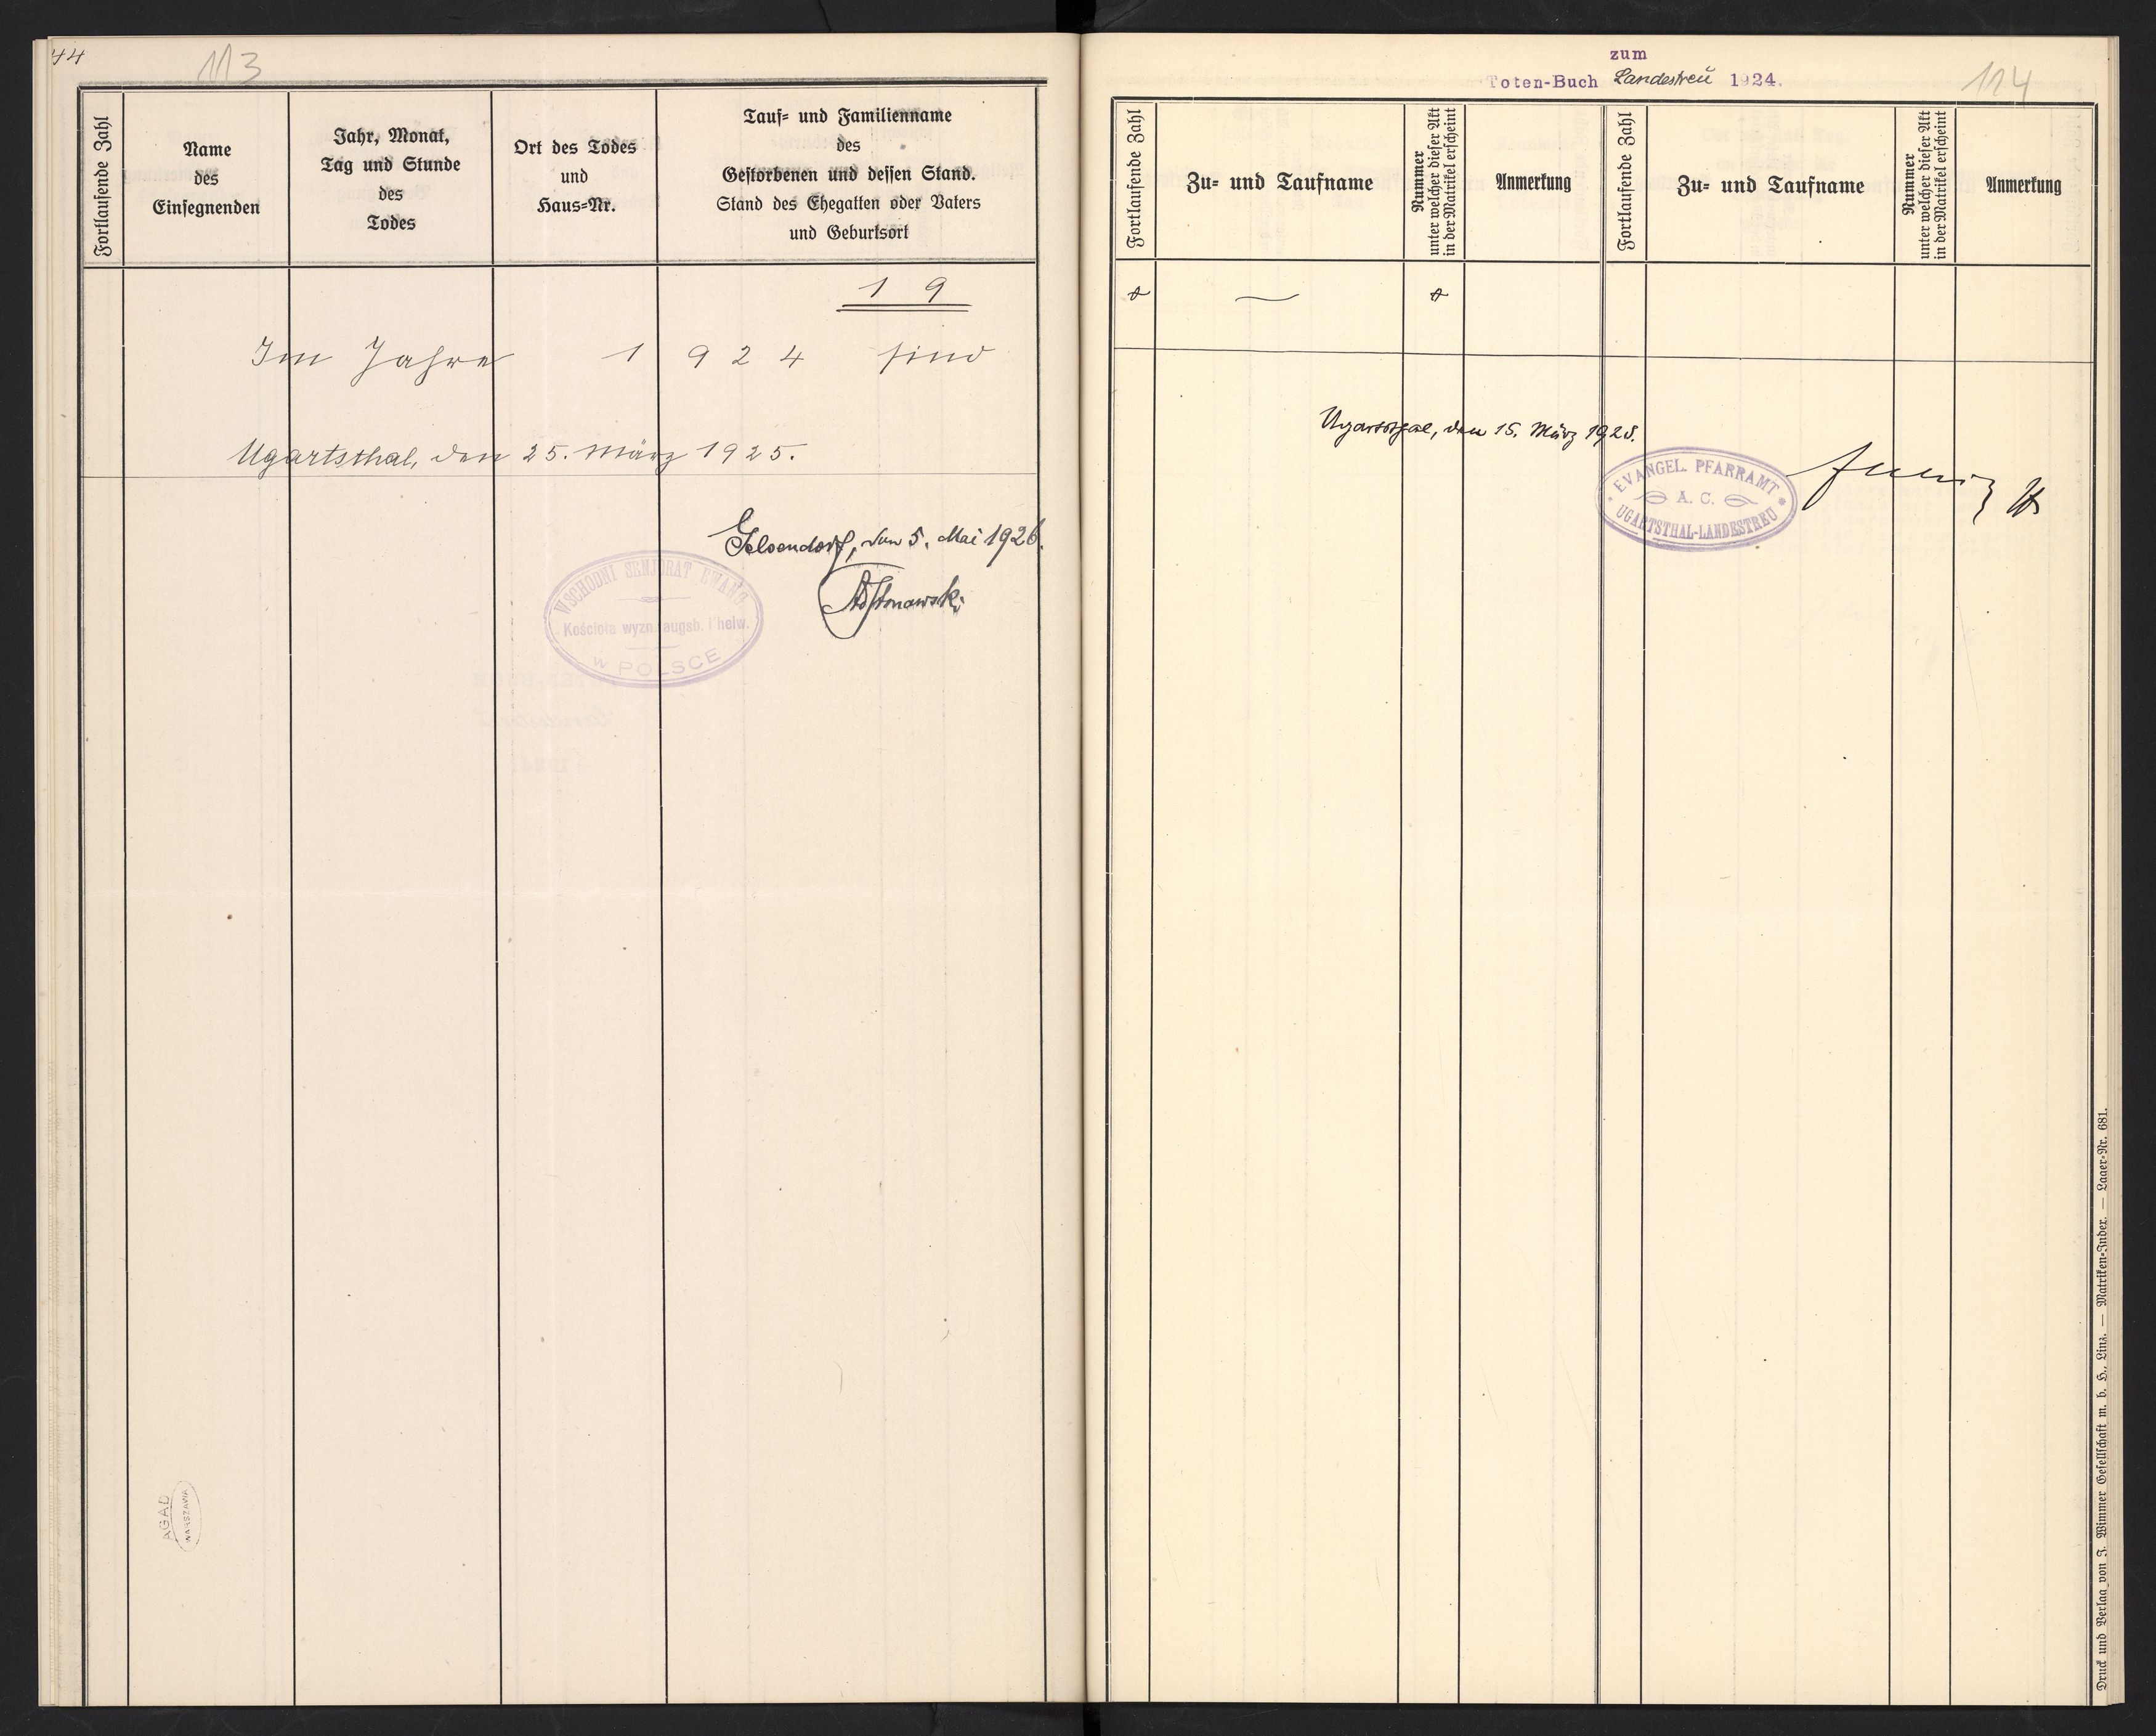 44
113
Fortlaufende Zahl
Name
des
Einsegnenden
Jahr, Monat,
Tag und Stunde
des
Todes
Ort des Todes
und
Haus-Nr.
Tauf- und Familienname
des
Gestorbenen und dessen Stand.
Stand des Ehegatten oder Vaters
und Geburtsort
1 9
Im Jahre 1 9 2 4 sind
Ugartsthal, den 25. März 1925.
Gelsendorf, den 5. Mai 1926.
WSCHODNI SENJORAT EWANG.
Kościoła wyzn. augsb. i helw.
w POLSCE
AGAD
WARSZAWA
zum
Toten-Buch Landestreü 1924.
114
Fortlaufende Zahl
Zu- und Taufname
Nummer
unter welcher dieser Akt
in der Matrikel erscheint
Anmerkung
Fortlaufende Zahl
Zu- und Taufname
Nummer
unter welcher dieser Akt
in der Matrikel erscheint
Anmerkung
Ugartsthal, den 15. März 1925.
EVANGEL. PFARRAMT
A. C.
UGARTSTHAL-LANDESTREU
Druck und Verlag von J. Wimmer Gesellschaft m. b. H., Linz. — Matriken-Index. — Lager-Nr. 681.